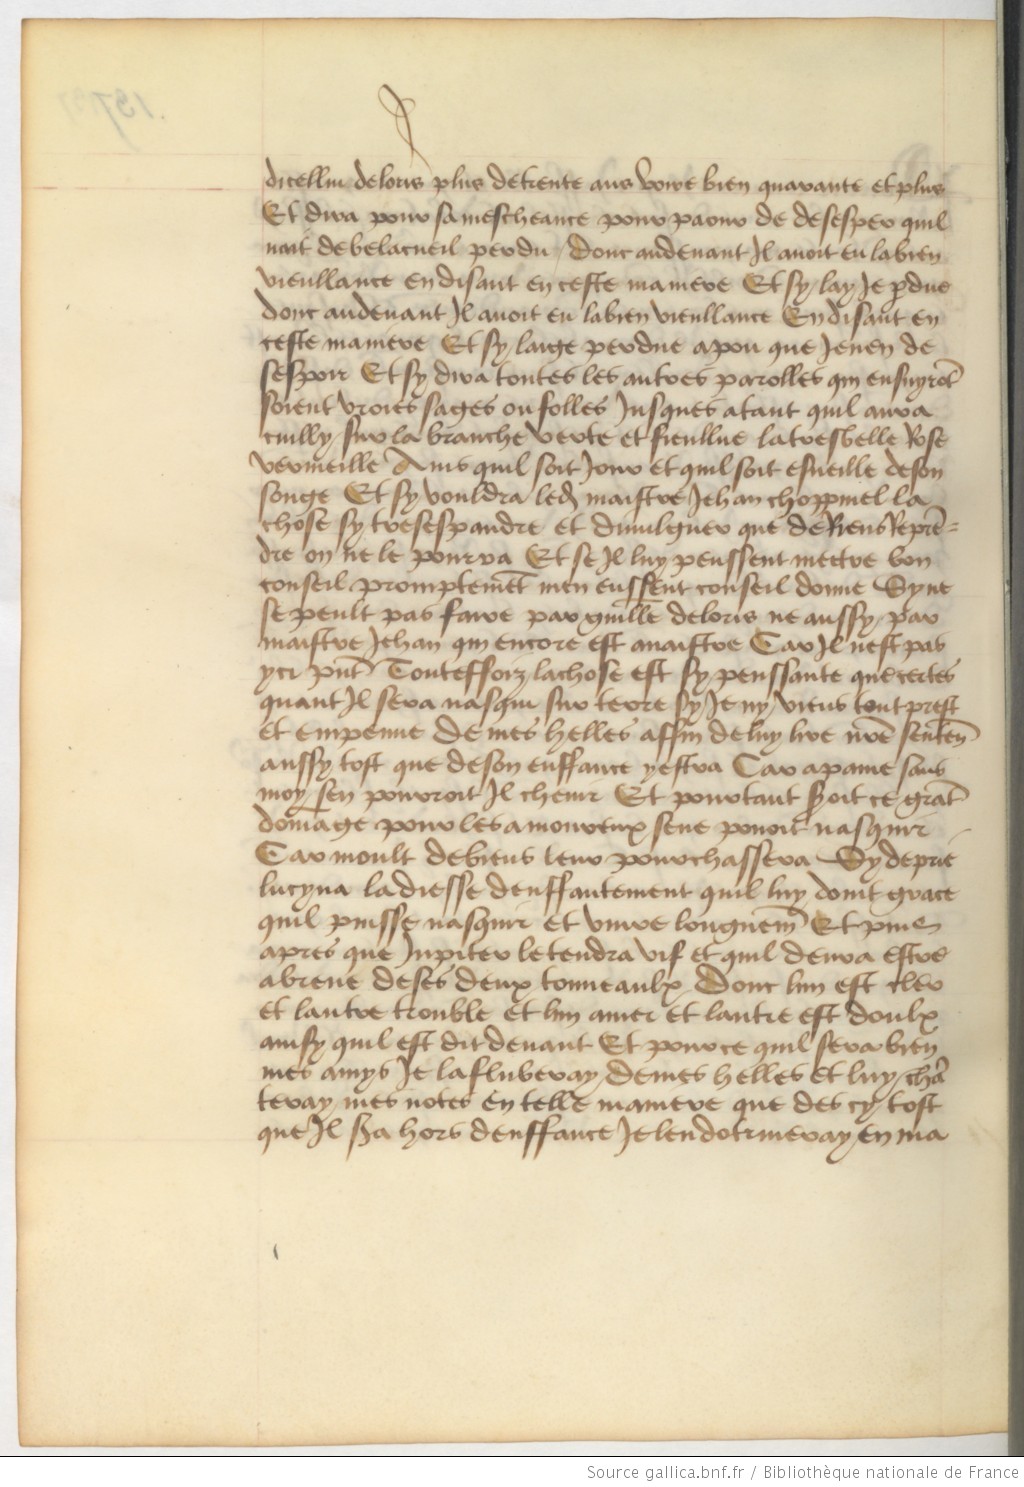 dicelluy deloris plus detrente ans voire bien quarante et plus
Et dira pour sa mescheance pour paour de desesper quil
nait de belacueil perdu / Donc audevant Il avoit eu la bien
vieullance en disant en ceste maniere Et sy lay Je pdue
donc audevant Il avoit eu la bien vieullance En disant en
ceste maniere Et sy laige perdue a pou que Jenen de
sespoir Et sy dira toutes les autres parolles qui ensuyrōt
soient vroies sages ou folles Jusques atant quil aura
cuilly sur la branche verte et fieullue la tresbelle Rose
vermeille Ains quil soit Jour et quil soit esueille deson
songe Et sy vouldra led maistre Jehan choppinel la
chose sy tresespandre et divulguer que de Riens Reprē-
dre on ne le pourra Et se Il luy peussent mectre bon
conseil promptemēt men eussent conseil donne Sy ne
se peult pas faire par guille deloris ne aussy par
maistre Jehan qui encore est anaistre Car Il nest pas
ycy pn̄t Touteffoiz la chose est sy penssante que certes
quant Il sera nasqui sur terre sy Je ny viens tout prest
et empenne de mes helles affin de luy lire vr̄e sentēn
aussy tost que deson enffance ystra Car apaine sans
moy sen pourroit Il chenir Et pourtant s̄oit ce grāt
domage pour les amoureux sene povoit nasquir
Car moult debiens leur pourchassera Sy deprie
lucyna la diesse denffantement quil luy doint grace
quil puisse nasquir et vivre longuem̄ Et puis
apres que Jupiter le tendra vif et quil devra estre
abreue deses deux tonneaulx Donc lun est cler
et lautre trouble et lun amer et lautre est doulx
ainsy quil est dit devant Et pource quil sera bien
mes amys Je lafluberay demes helles et luy chā
teray mes notes en telle maniere que des cy tost
que Il s̄a hors denffance Je lendotrineray en ma
Source gallica.bnf.fr / Bibliothèque nationale de France